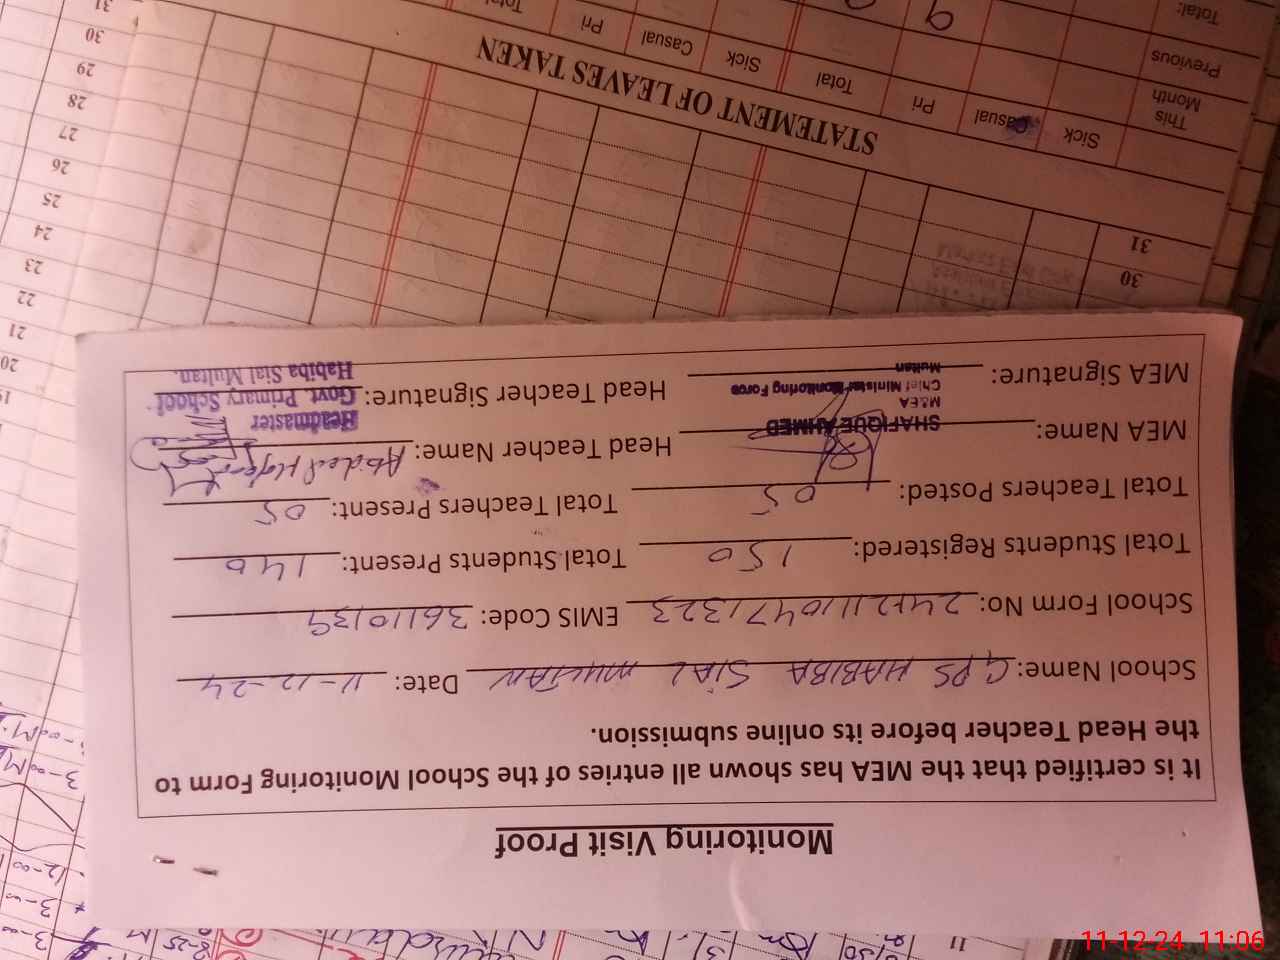 Monitoring Visit Proof
It is certified that the MEA has shown all entries of the School Monitoring Form to
the Head Teacher before its online submission.
School Name: GPS HABIBA SIAL MULTAN Date: 11-12-24
School Form No: 24121110471323 EMIS Code: 36110139
Total Students Registered: 150 Total Students Present: 140
Total Teachers Posted: 05 Total Teachers Present: 05
MEA Name: Head Teacher Name: Abdul
SHAFIQUE AHMED
M&EA
Chief Minister Monitoring Force
Multan
MEA Signature: Head Teacher Signature:
Headmaster
Govt. Primary School
Habiba Sial Multan.
30
31
STATEMENT OF LEAVES TAKEN
Sick Casual Pri Total Sick Casual Pri Total
This Month
Previous
Total: 9
20
21
22
23
24
25
26
27
28
29
30
31
11
3-00
3-00
12-00
8-25
11-12-24 11:06